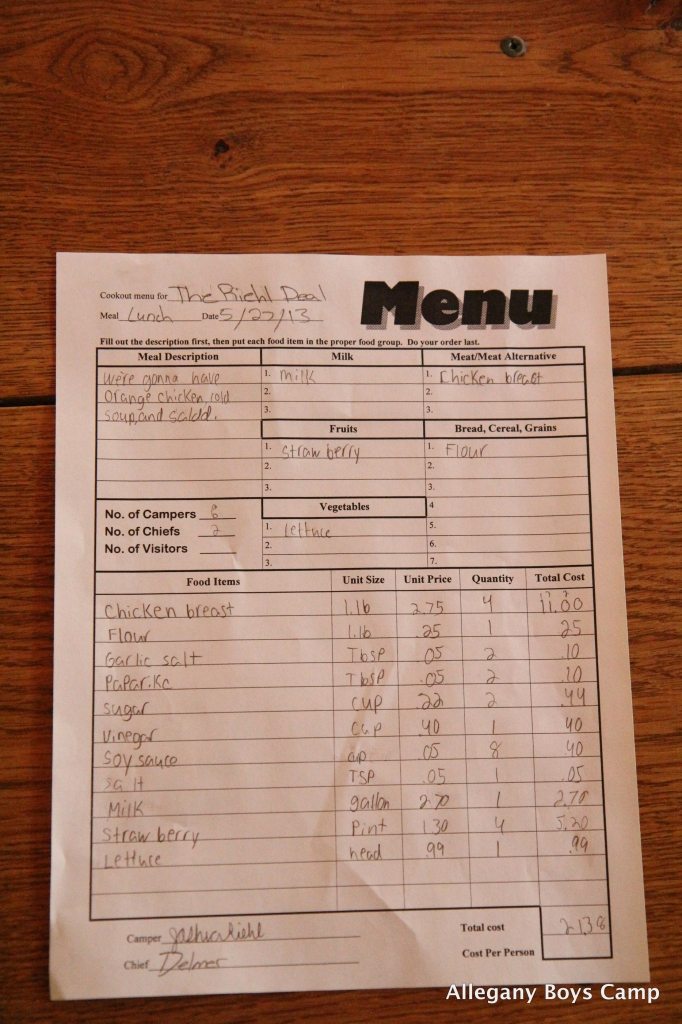 Cookout menu for The Riehl Deal
Menu
Meal Lunch Date 5/27/13
Fill out the description first, then put each food item in the proper food group. Do your order last.
Meal Description Milk Meat/Meat Alternative
we're gonna have 1. milk 1. Chicken breast
Orange chicken, cold 2. 2.
soup, and salad. 3. 3.
Fruits Bread, Cereal, Grains
1. Straw berry 1. Flour
2. 2.
3. 3.
No. of Campers 8 Vegetables 4
No. of Chiefs 2 1. lettuce 5.
No. of Visitors 2. 6.
3. 7.
Food Items Unit Size Unit Price Quantity Total Cost
Chicken breast 1.lb 2.75 4 11.00
Flour 1.lb .25 1 25
Garlic salt TbsP .05 2 .10
PaPar.Kc TbsP .05 2 .10
sugar cup .22 2 .44
Vinegar Cup 40 1 40
Soy sauce .05 8 40
salt TSP .05 1 .05
Milk gallon 2.70 1 2.70
Straw berry Pint 1.30 4 5.20
Lettuce head .99 1 .99
Camper Joshua Riehl Total cost 21.38
Chief Delmer Cost Per Person
Allegany Boys Camp